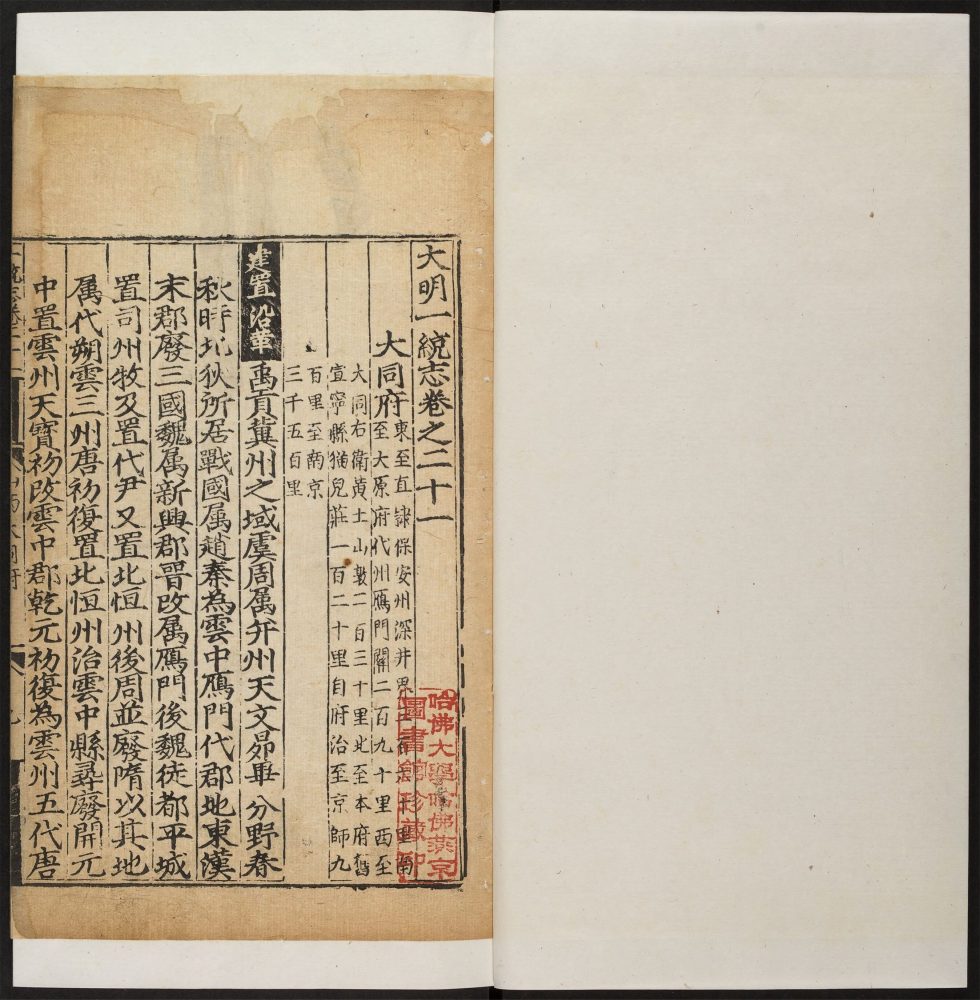 大明一統志卷之二十一
大同府
東至直隸保安州深井界二百 十里南
至大原府代州鴈門關二百九十里西至
大同右衛黄土山墩二百三十里北至本府舊
宣寧縣猫兒莊一百二十里自府治至京師九
百里至南京
三千五百里
建置沿革 禹貢冀州之域虞周属并州天文昴畢分野春
秋時北狄所居戰國属趙秦為雲中鴈門代郡地東漢
末郡廢三國魏属新興郡晉改属鴈門後魏徒都平城
置司州牧及置代尹又置北恒州後周並廢隋以其地
属代朔雲三州唐初復置北恒州治雲中縣尋廢開元
中置雲州天寳初改雲中郡乾元初復為雲州五代唐
哈佛大學哈佛燕京
圖書館珍藏印
一統志卷二十一
山西大同府